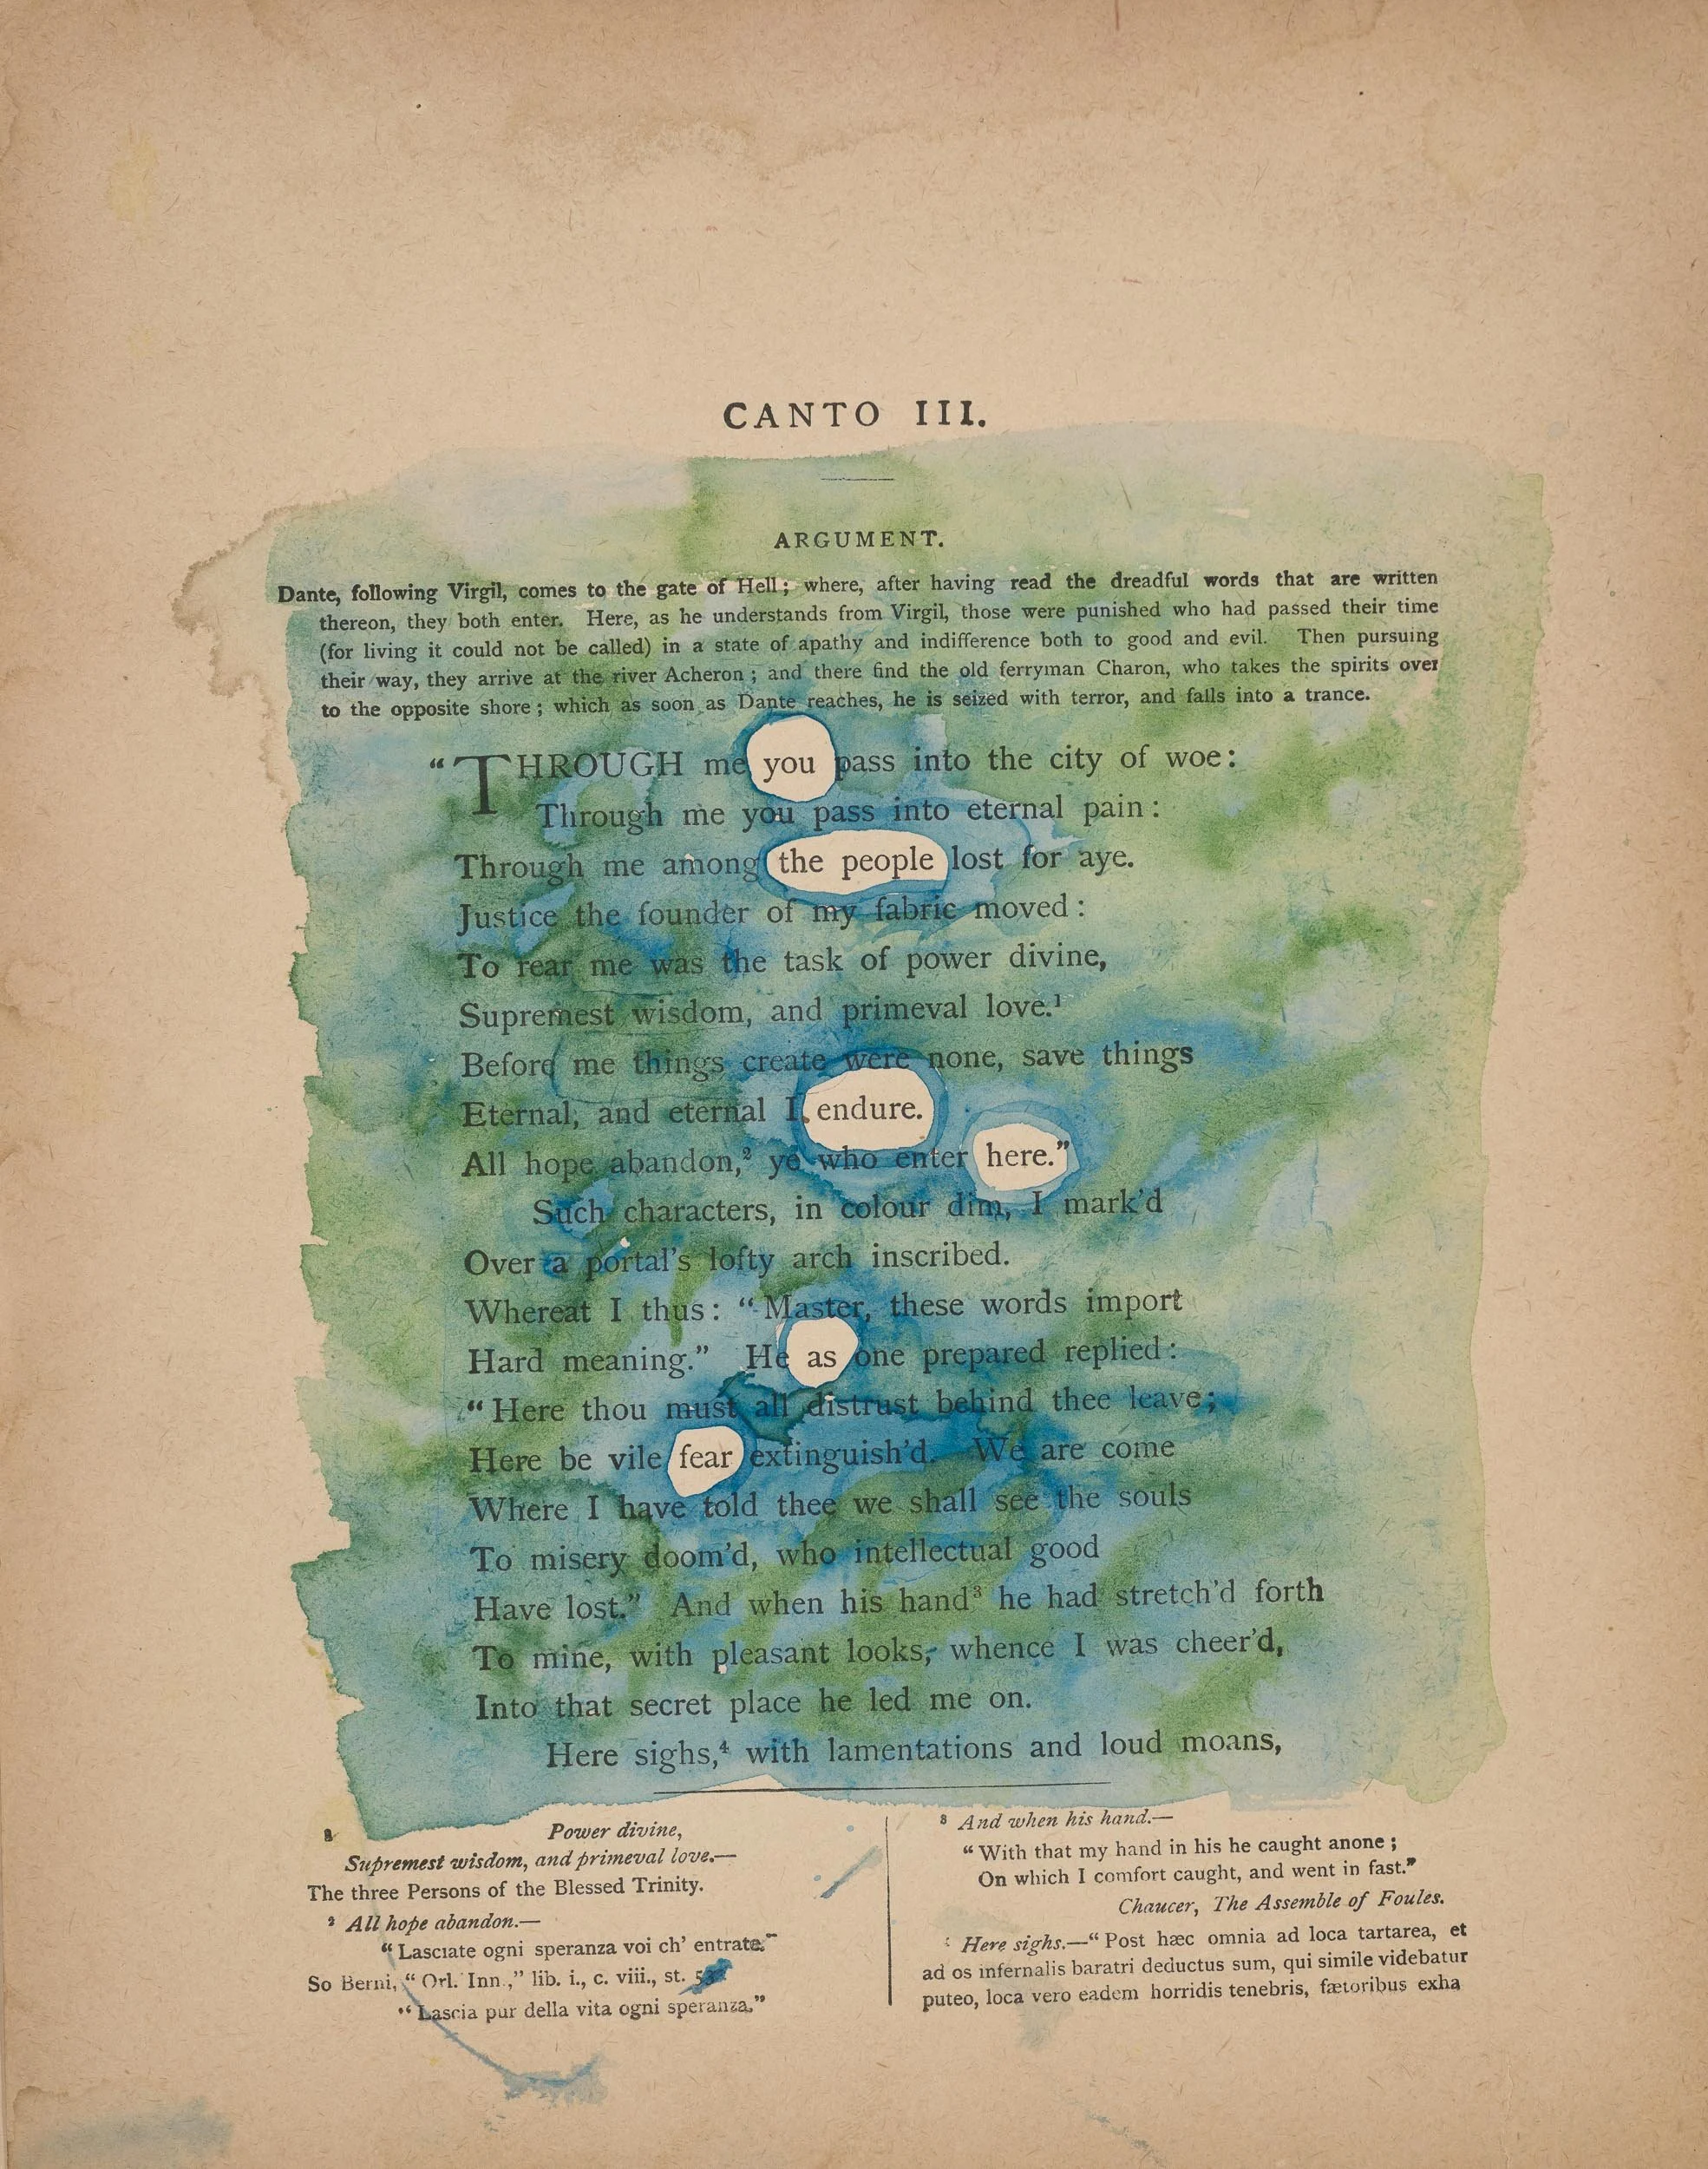 CANTO III.
ARGUMENT.
Dante, following Virgil, comes to the gate of Hell; where, after having read the dreadful words that are written
thereon, they both enter. Here, as he understands from Virgil, those were punished who had passed their time
(for living it could not be called) in a state of apathy and indifference both to good and evil. Then pursuing
their way, they arrive at the river Acheron; and there find the old ferryman Charon, who takes the spirits over
to the opposite shore; which as soon as Dante reaches, he is seized with terror, and falls into a trance.
“THROUGH me you pass into the city of woe:
Through me you pass into eternal pain:
Through me among the people lost for aye.
Justice the founder of my fabric moved:
To rear me was the task of power divine,
Supremest wisdom, and primeval love.¹
Before me things create were none, save things
Eternal, and eternal I endure.
All hope abandon,² ye who enter here.”
Such characters, in colour dim, I mark’d
Over a portal’s lofty arch inscribed.
Whereat I thus: “Master, these words import
Hard meaning.” He as one prepared replied:
“Here thou must all distrust behind thee leave;
Here be vile fear extinguish’d. We are come
Where I have told thee we shall see the souls
To misery doom’d, who intellectual good
Have lost.” And when his hand³ he had stretch’d forth
To mine, with pleasant looks, whence I was cheer’d,
Into that secret place he led me on.
Here sighs,⁴ with lamentations and loud moans,
Power divine,
Supremest wisdom, and primeval love.—
The three Persons of the Blessed Trinity.
² All hope abandon.—
“Lasciate ogni speranza voi ch’ entrate.”
So Berni, “Orl. Inn.,” lib. i., c. viii., st.
“Lascia pur della vita ogni speranza.”
³ And when his hand.—
“With that my hand in his he caught anone;
On which I comfort caught, and went in fast.”
Chaucer, The Assemble of Foules.
Here sighs.—“Post hæc omnia ad loca tartarea, et
ad os infernalis baratri deductus sum, qui simile videbatur
puteo, loca vero eadem horridis tenebris, fætoribus exha